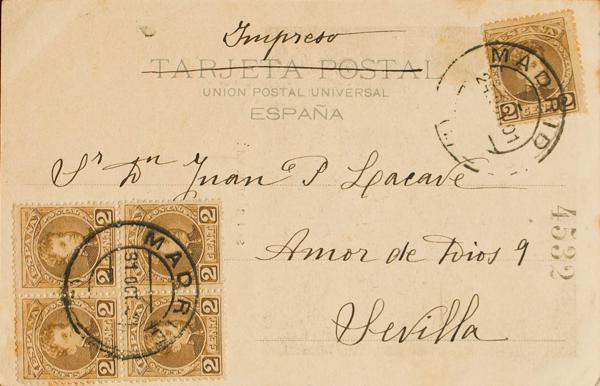 Impreso
TARJETA POSTAL
UNION POSTAL UNIVERSAL
ESPAÑA
MADRID
2
2
Sr Dn Juan P Lacave
Amor de Dios 9
Sevilla
4532
2
2
2
2
MADR
31 OCT